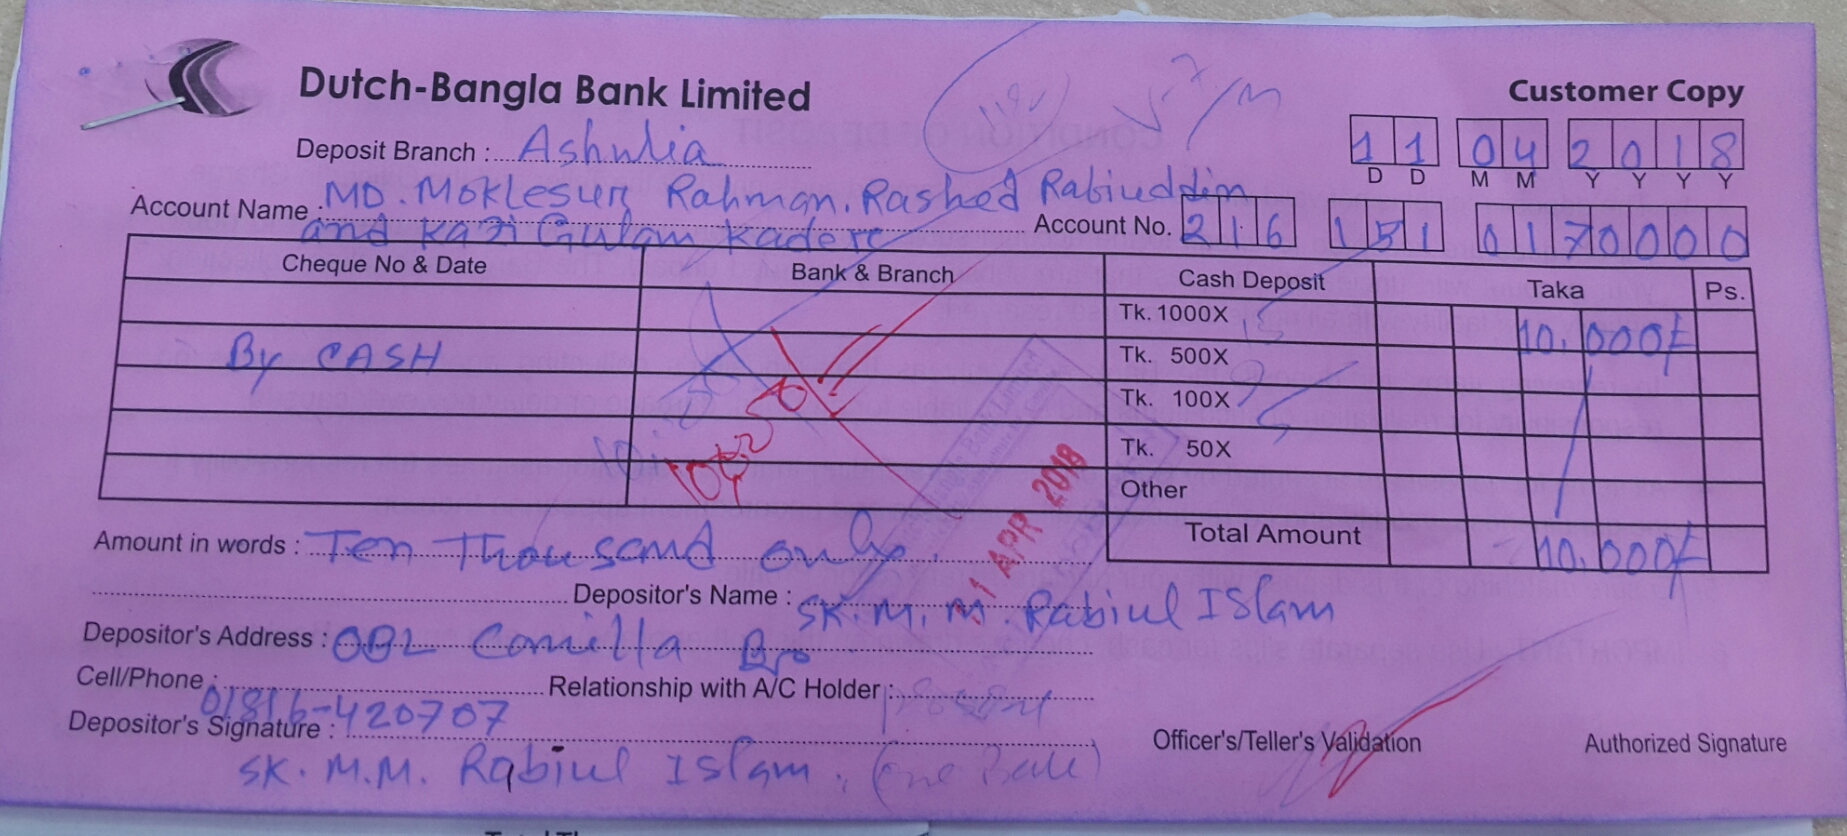 Dutch-Bangla Bank Limited
Customer Copy
Deposit Branch : Ashulia
11 04 2018
D D M M Y Y Y Y
Account Name : MD. Moklesur Rahman. Rashed Rabiuddin
and Kazi Gulam Kader
Account No. 216 151 0170000
Cheque No & Date Bank & Branch Cash Deposit Taka Ps.
Tk. 1000X 10,000/=
By CASH
Tk. 500X
Tk. 100X
Tk. 50X
Other
11 APR 2018
Total Amount 10,000/=
Amount in words : Ten Thousand only.
Depositor's Name : SK. M. M. Rabiul ISlam
Depositor's Address : OBL Comilla Br
Cell/Phone : 01816-420707
Relationship with A/C Holder :
Depositor's Signature :
SK. M.M. Rabiul Islam.
Officer's/Teller's Validation
Authorized Signature